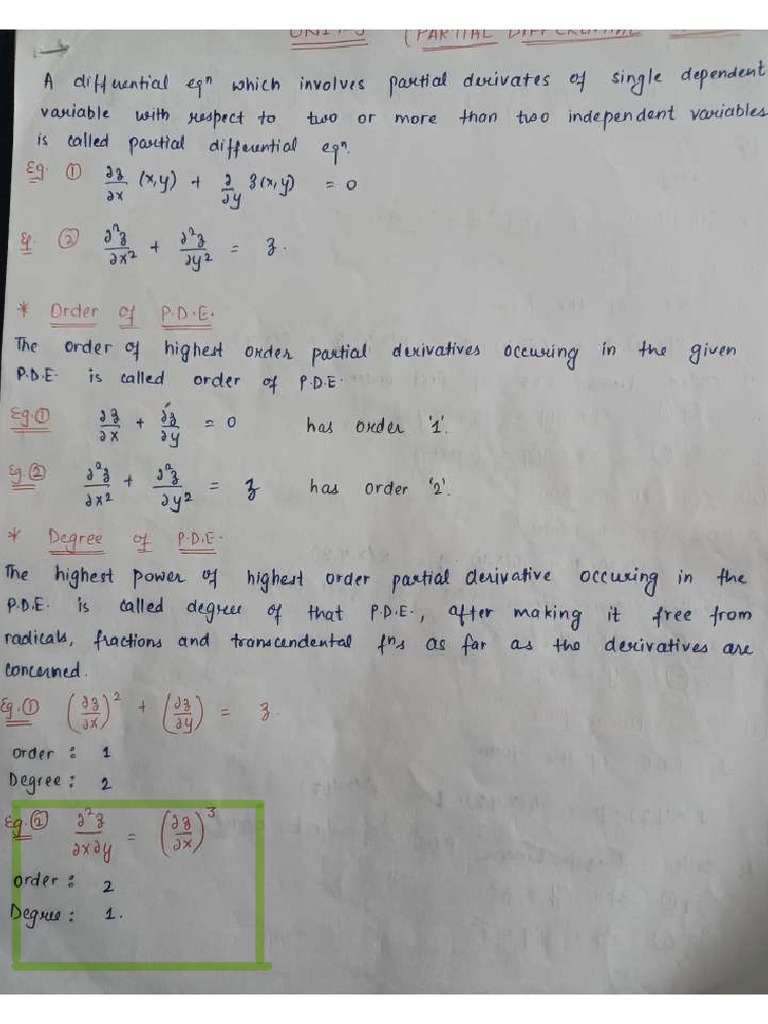 UNIT-5 (PARTIAL DIFFERENTIAL
A differential eqⁿ which involves partial derivates of single dependent
variable with respect to two or more than two independent variables
is called partial differential eqⁿ.
Eg. ① ∂z/∂x (x,y) + ∂/∂y z(x,y) = 0
Eg. ② ∂²z/∂x² + ∂²z/∂y² = z.
* Order of P.D.E.
The order of highest order partial derivatives occuring in the given
P.D.E. is called order of P.D.E.
Eg.① ∂z/∂x + ∂z/∂y = 0 has order '1'.
Eg.② ∂²z/∂x² + ∂²z/∂y² = z has order '2'.
* Degree of P.D.E.
The highest power of highest order partial derivative occuring in the
P.D.E. is called degree of that P.D.E., after making it free from
radicals, fractions and transcendental fⁿs as far as the derivatives are
concerned.
Eg.① (∂z/∂x)² + (∂z/∂y) = z.
order : 1
Degree : 2
Eg.② ∂²z/∂x∂y = (∂z/∂x)³
order : 2
Degree : 1.